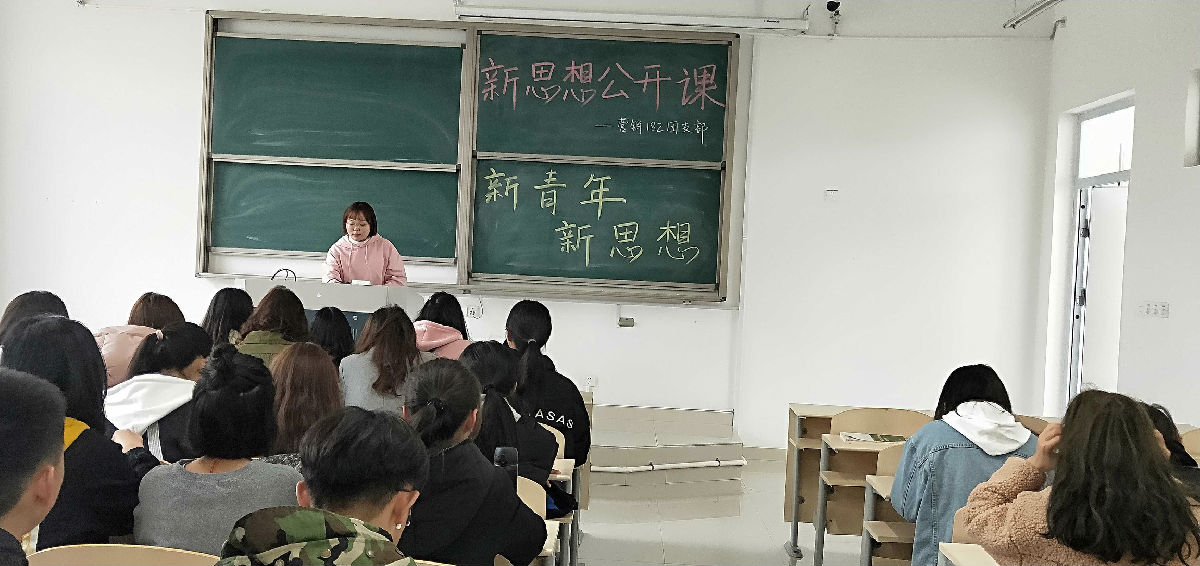 新思想公开课
——营销182团支部
新青年
新思想
ASAS